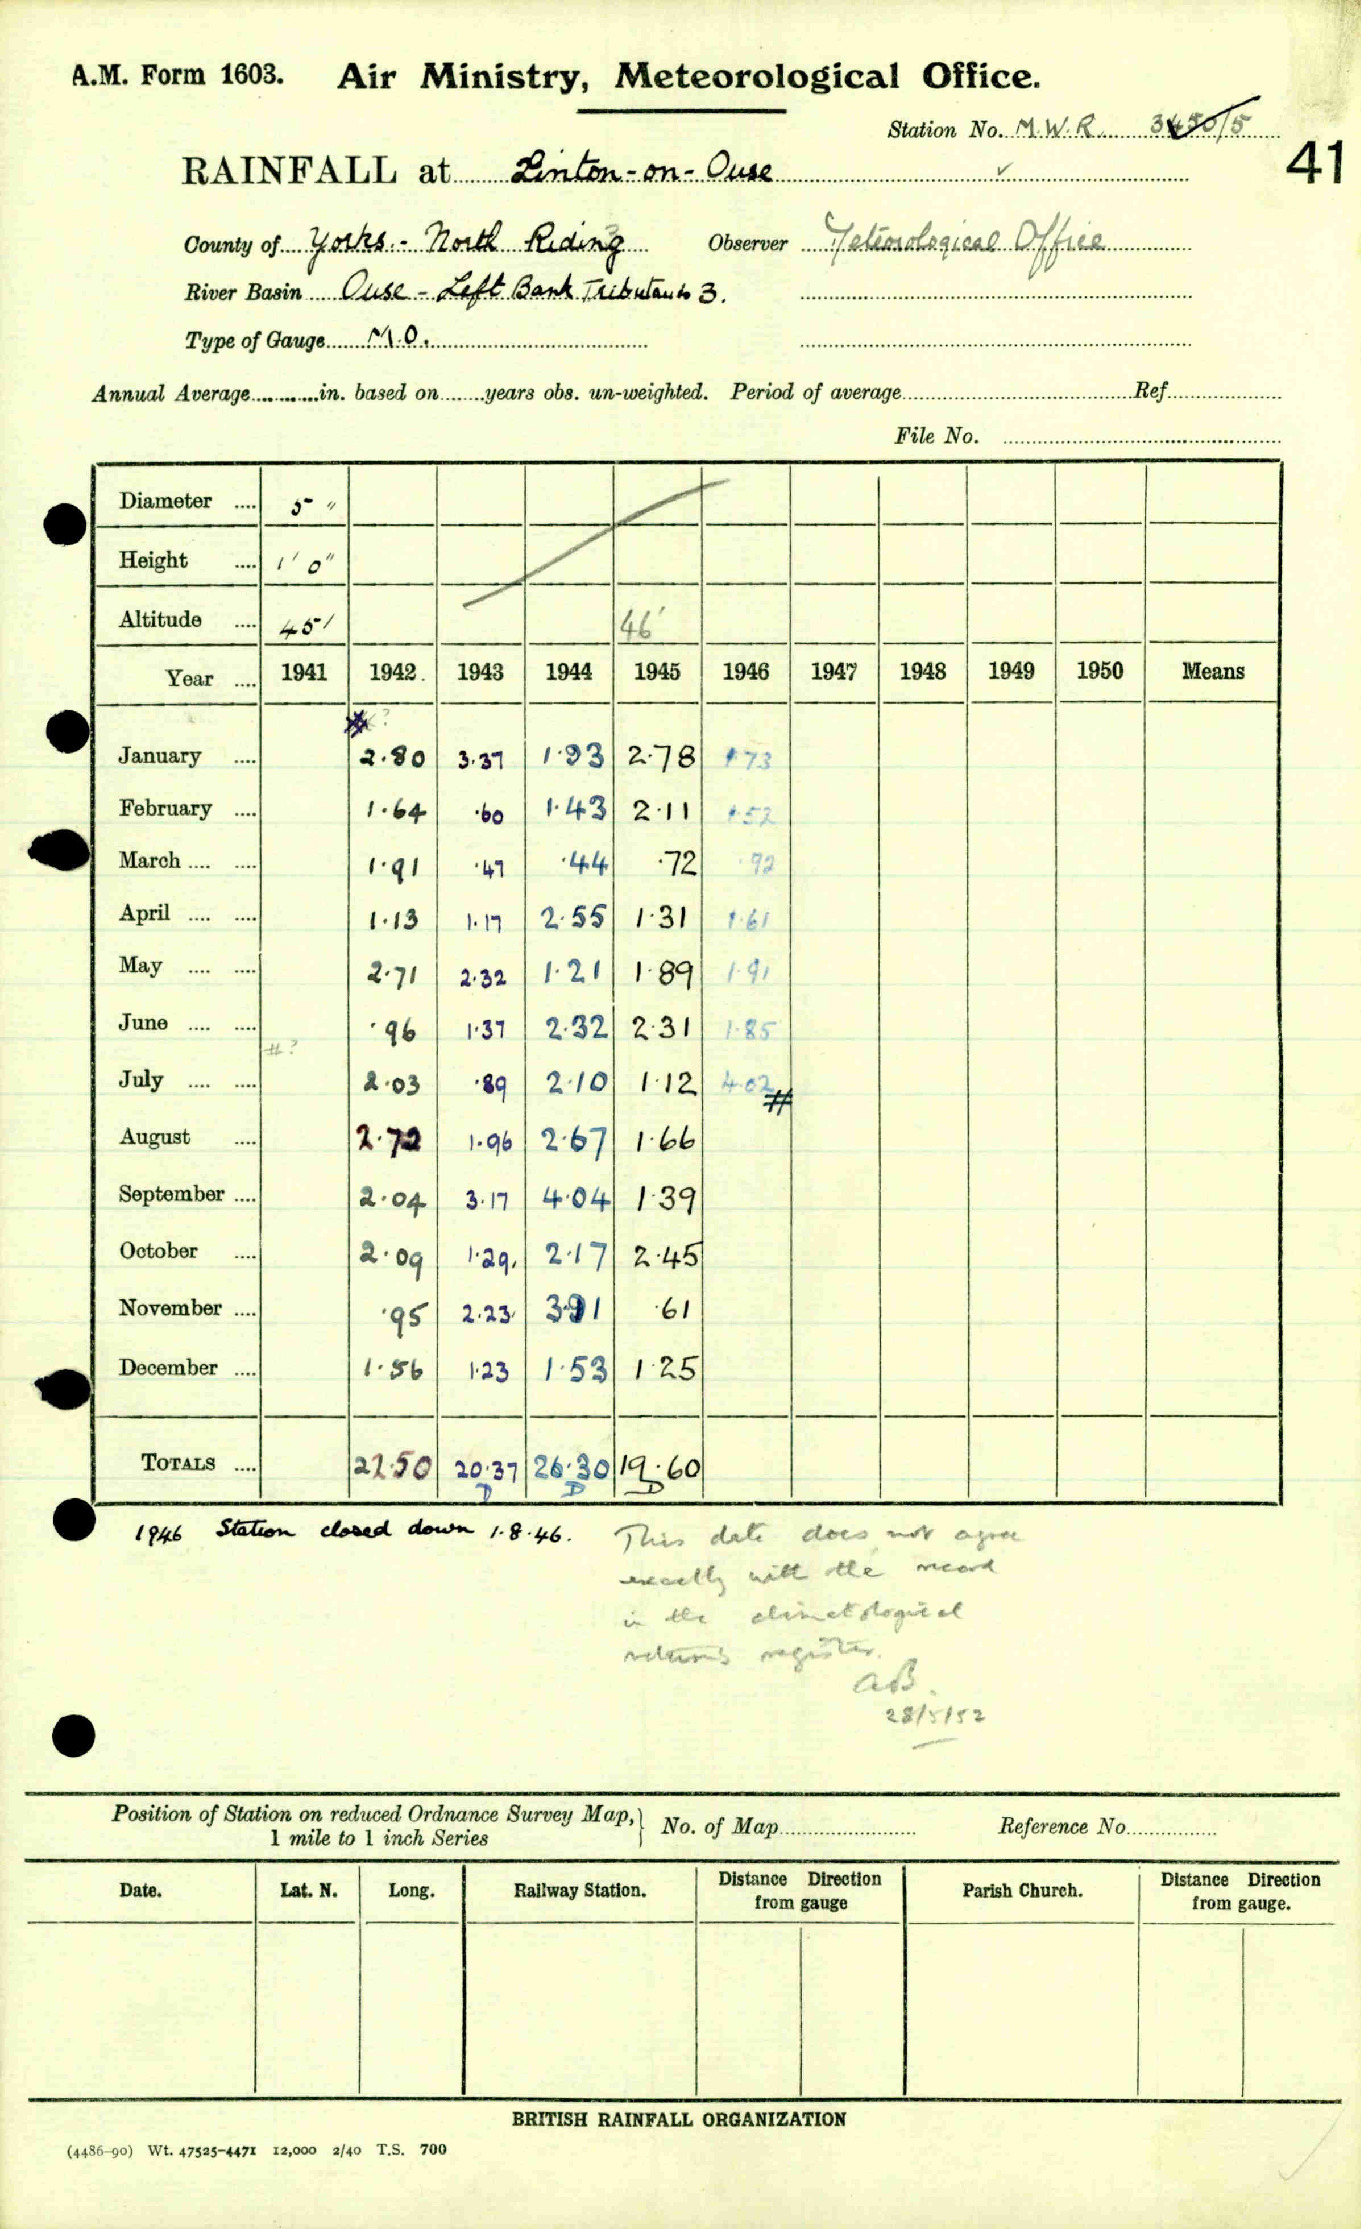 A.M. Form 1603. Air Ministry, Meteorological Office.
Station No. M.W.R. 3450/5
41
RAINFALL at Linton-on-Ouse
County of Yorks.- North Riding Observer Meteorological Office
River Basin Ouse - Left Bank 3.
Type of Gauge M.O.
Annual Average in. based on years obs. un-weighted. Period of average Ref.
File No.
Diameter .... 5"
Height .... 1' 0"
Altitude .... 45' 46'
Year .... 1941 1942. 1943 1944 1945 1946 1947 1948 1949 1950 Means
# ?
January .... 2.80 3.37 1.93 2.78 1.73
February .... 1.64 .60 1.43 2.11 1.52
March .... .... 1.91 .47 .44 .72 .92
April .... .... 1.13 1.17 2.55 1.31 1.61
May .... .... 2.71 2.32 1.21 1.89 1.91
June .... .... .96 1.37 2.32 2.31 1.85
#?
July .... .... 2.03 .89 2.10 1.12 4.02
#
August .... 2.72 1.96 2.67 1.66
September .... 2.04 3.17 4.04 1.39
October .... 2.09 1.29. 2.17 2.45
November .... .95 2.23 3.91 .61
December .... 1.56 1.23 1.53 1.25
TOTALS .... 22.50 20.37 26.30 19.60
D D D
1946 Station closed down 1.8.46. This date does not agree
exactly with the record
in the climatological
returns register.
AB.
28/5/52
Position of Station on reduced Ordnance Survey Map,} No. of Map Reference No.
1 mile to 1 inch Series
Date. Lat. N. Long. Railway Station. Distance Direction from gauge Parish Church. Distance Direction from gauge.
BRITISH RAINFALL ORGANIZATION
(4486-90) Wt. 47525-4471 12,000 2/40 T.S. 700